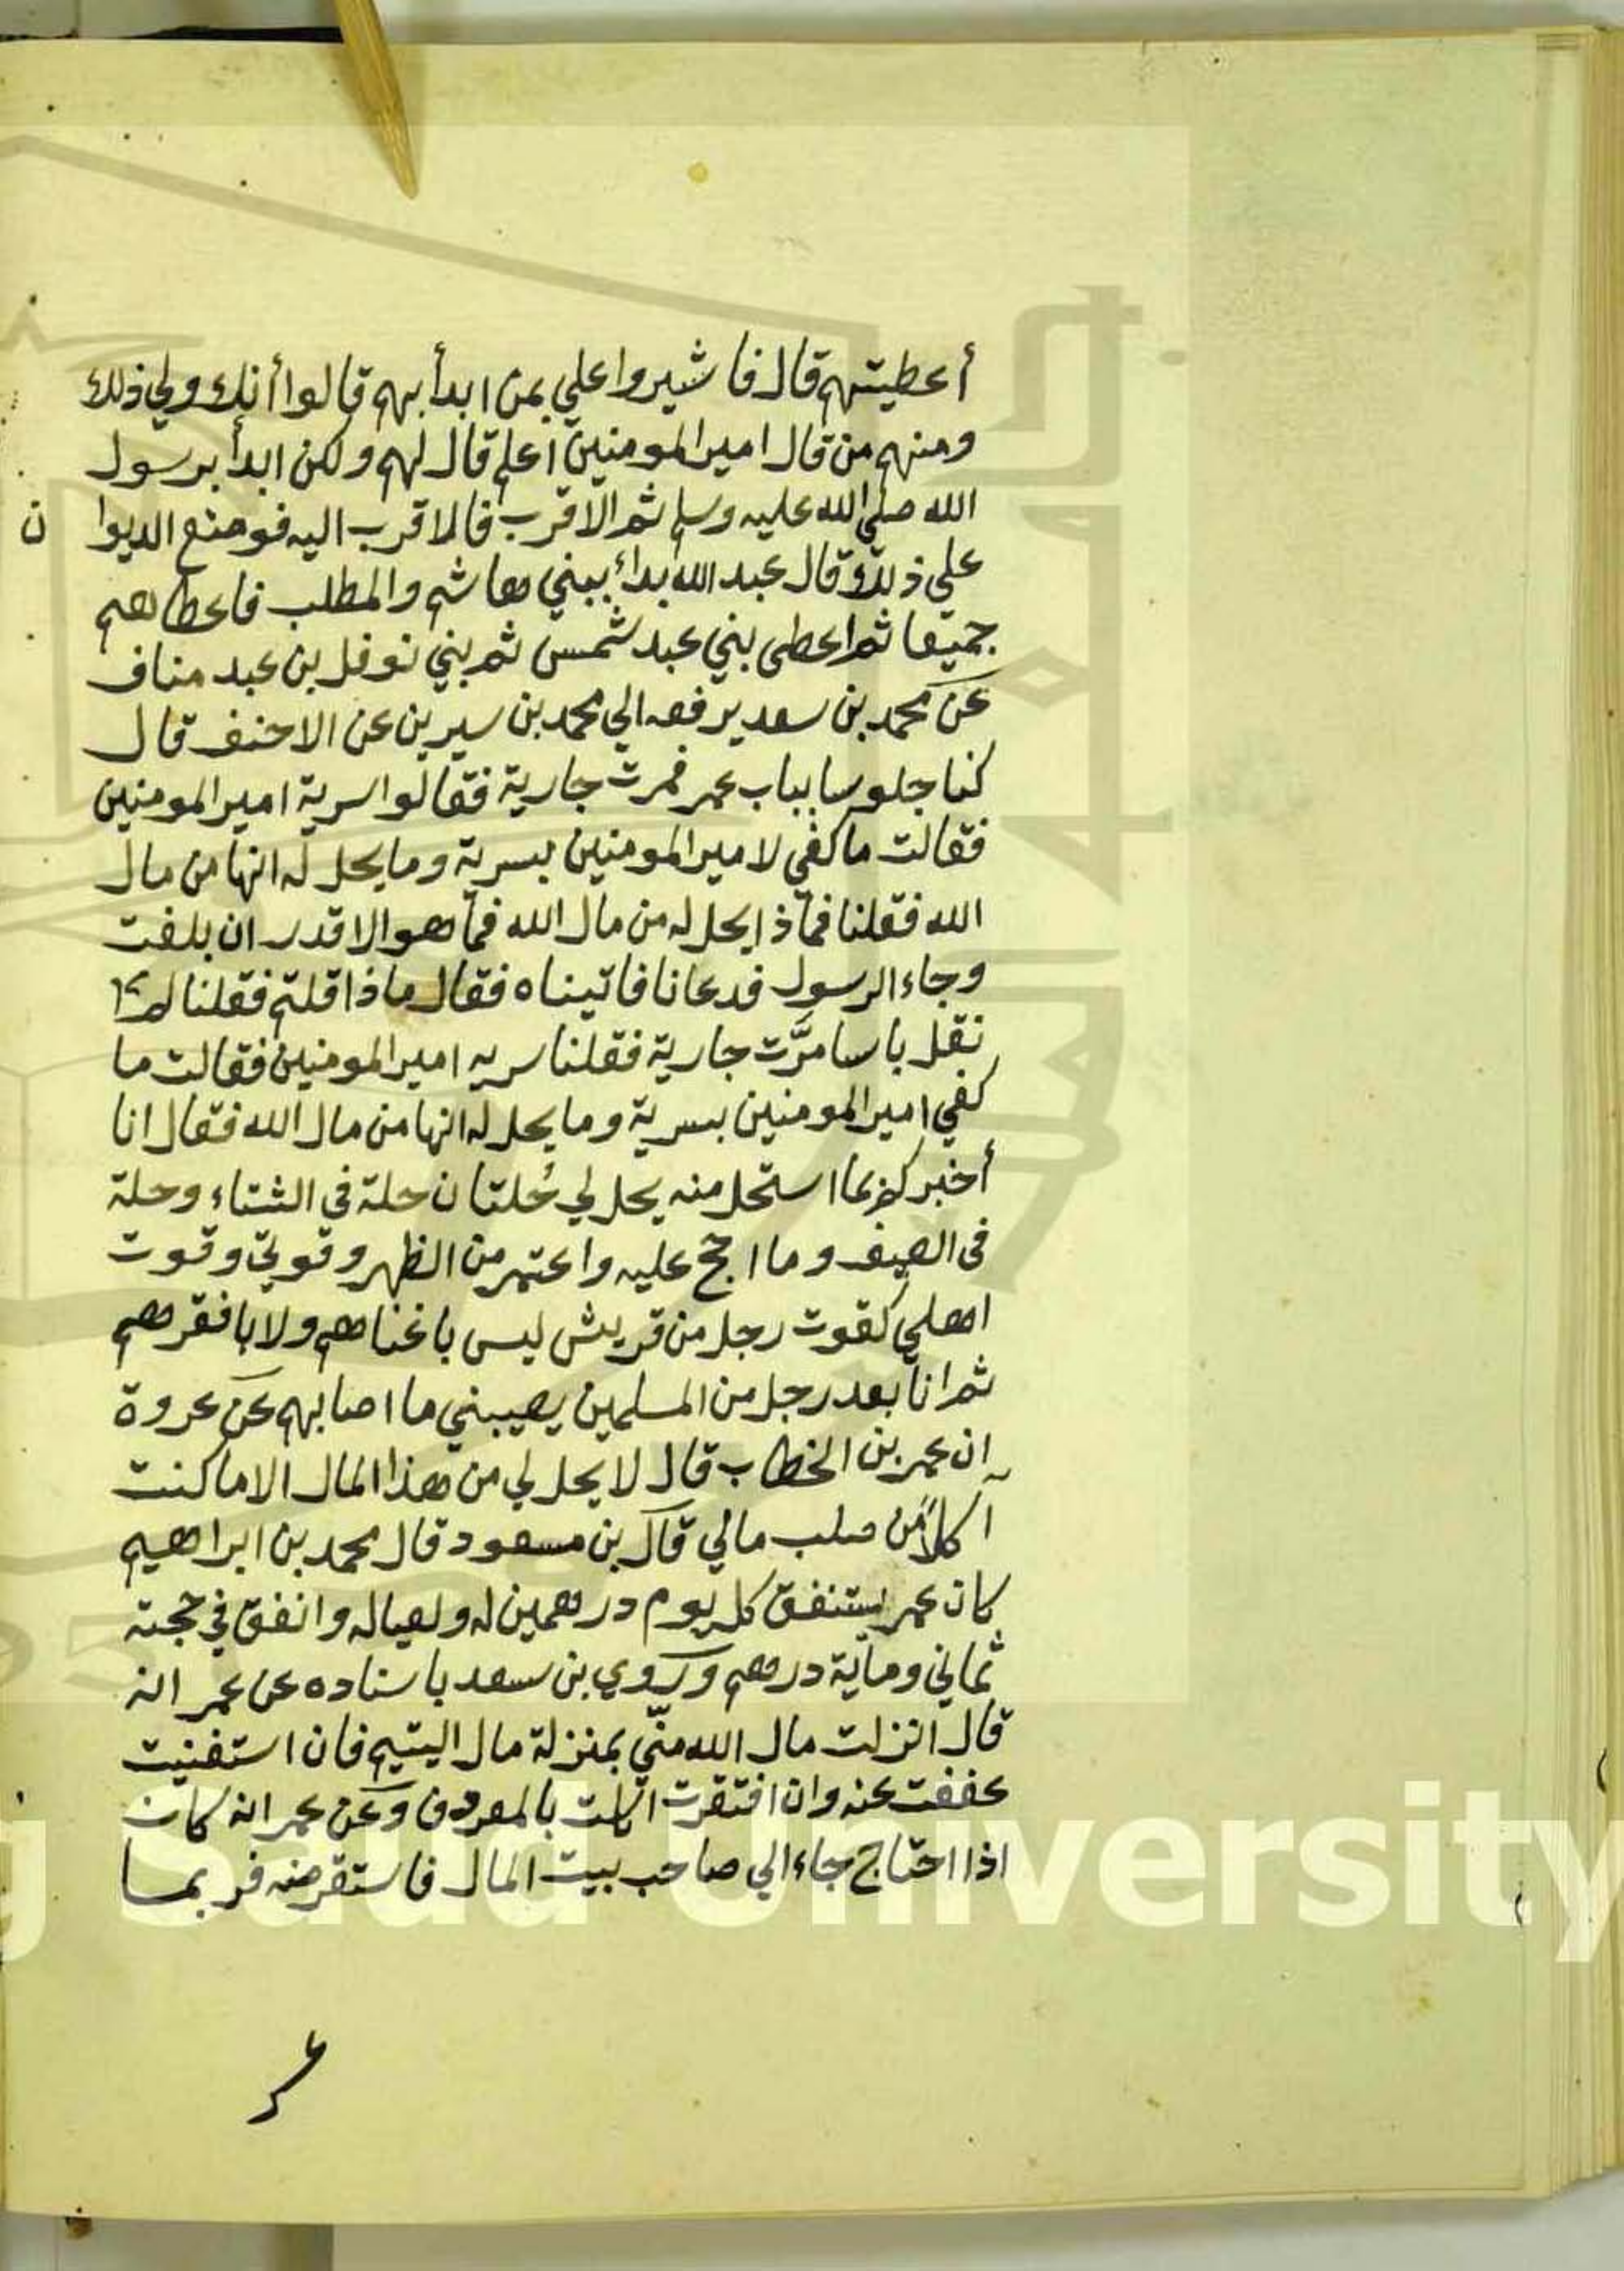 أعطيتهم قال فاشيروا علي بمن ابدأ بهم قالوا أنك ولي ذلك
ومنهم من قال امير المومنين اعلم قال لهم ولكن ابدأ برسول
الله صلي الله عليه وسلم ثم الاقرب فالاقرب اليه فوضع الديوا ن
علي ذلك وقال عبد الله بدأ ببني هاشم والمطلب فاعطاهم
جميعا ثم اعطى بني عبد شمس ثم بني نوفل بن عبد مناف
عن محمد بن سعد يرفعه الي محمد بن سيرين عن الاحنف قال
كنا جلوسا بباب عمر فمرت جارية فقالوا سرية امير المومنين
فقالت ما كفي لامير المومنين بسرية وما يحل له انها من مال
الله فقلنا فماذا يحل له من مال الله فما هو الا قدر ان بلغت
وجاء الرسول فدعانا فاتيناه فقال ماذا قلتم فقلنا لم
نقل باسا مرَّت جارية فقلنا سريه امير المومنين فقالت ما
كفي امير المومنين بسرية وما يحل له انها من مال الله فقال انا
أخبركم بما استحل منه يحل لي حُلتان حلة في الشتاء وحلة
في الصيف وما احج عليه واعتمر من الظهر وقوتي وقوت
اهلي كقوت رجل من قريش ليس باغناهم ولا بافقرهم
ثم انا بعد رجل من المسلمين يصيبني ما اصابهم عن عروة
ان عمر بن الخطاب قال لا يحل لي من هذا المال الا ما كنت
آكلاً من صلب مالي قال بن مسعود قال محمد بن ابراهيم
كان عمر يستنفق كل يوم درهمين له ولعياله وانفق في حجته
ثماني وماية درهم وروي بن سعد باسناده عن عمر انه
قال انزلت مال الله منّي بمنزلة مال اليتيم فان استغنيت
عففت عنه وان افتقرت اكلت بالمعروف وعن عمر انه كان
اذا احتاج جاء الي صاحب بيت المال فاستقرضه فربما
King Saud University